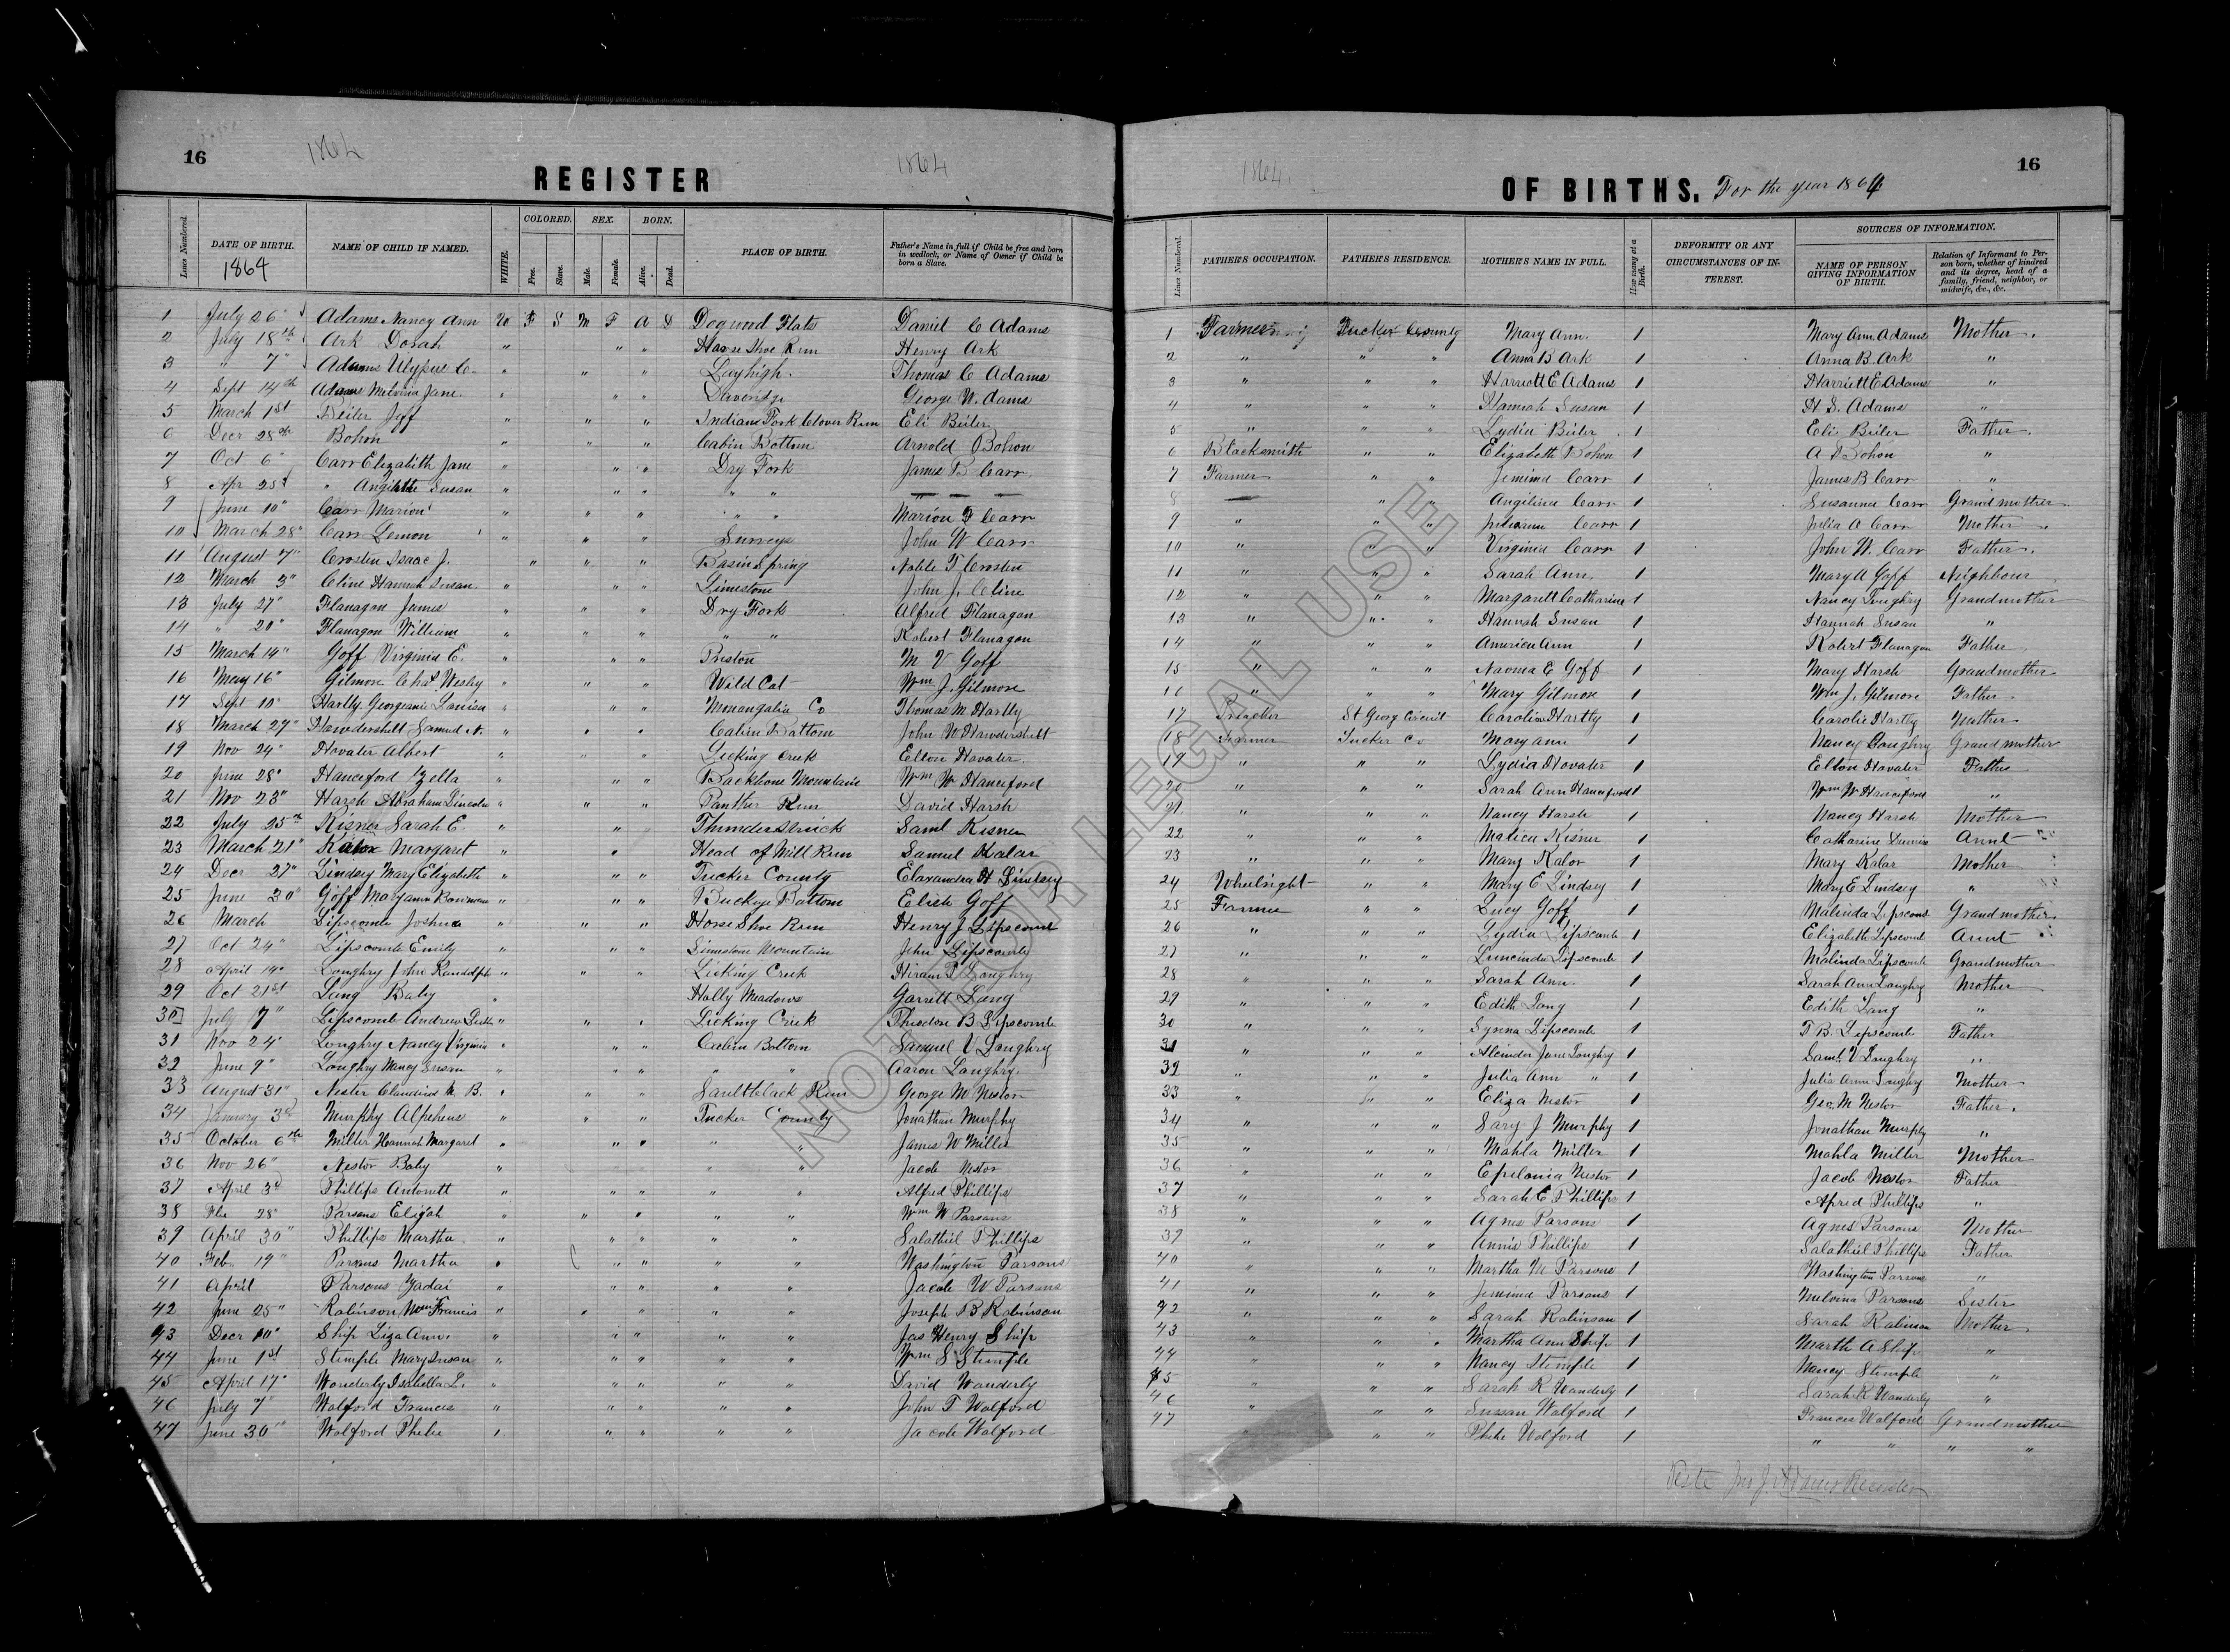 16
1864
1864
REGISTER
Lines Numbered.
DATE OF BIRTH.
1864
NAME OF CHILD IF NAMED.
WHITE.
COLORED.
Free.
Slave.
SEX.
Male.
Female.
BORN.
Alive.
Dead.
PLACE OF BIRTH.
Father's Name in full if Child be free and born in wedlock, or Name of Owner if Child be born a Slave.
1 July 26" Adams Nancy Ann W F S M F A D Dogwood Flats Daniel C Adams
2 July 18th Ark Dorah " " " Horse Shoe Run Henry Ark
3 " 7" Adams Ulysus C. " " " Layhigh. Thomas C Adams
4 Sept 14th Adams Melvina Jane " " " George W. dams
5 March 1st Beiler Jeff " " " Indians Fork Clover Run Eli Beiler
6 Decr 28th Bohon " " " Cabin Bottom Arnold Bohon
7 Oct 6" Carr Elizabeth Jane " " " Dry Fork James B Carr
8 Apr 25" " Susan " " " " "
9 June 10" Carr Marion " " " " " Marion F Carr
10 March 28" Carr Lemon " " " Surveys John W Carr
11 August 7" Crosten Isaac J. " " " Basin Spring T Crosten
12 March 3" Cline Hannah Susan " " " Limestone John J. Cline
13 July 27" Flanagan James " " " Dry Fork Alfred Flanagan
14 " 20" Flanagon William " " " " " Robert Flanagan
15 March 14" Goff Virginia E. " " " Preston M V Goff
16 May 16" Gilmore Chas Wesley " " " Wild Cat Wm J. Gilmore
17 Sept 10" Hartly Georgeanie " " " Monangalia Co Thomas M. Hartly
18 March 27" Samuel N. " " " Cabin Bottom John W
19 Nov 24" Hovater Albert " " " Licking Creek Elton Hovater.
20 June 28" Hanceford Zella " " " Backbone Mountain Wm W Hanceford
21 Nov 23" Harsh Abraham Lincoln " " " Panther Run David Harsh
22 July 25th Kisner Sarah E. " " Thunderstruck Saml Kisner
23 March 21" Margaret " " Head of Mill Run Samuel Kalar
24 Decr 27" Lindsy Mary Elizabeth " " " Tucker County H Lindsey
25 June 30" Goff " " " Buckeye Bottom Elish Goff
26 March Lipscomb Joshua " " " Horse Shoe Run Henry J Lipscomb
27 Oct 24" Lipscomb Emily " " " Limestone Mountain John Lipscomb
28 April 14" Longhry John Randolph " " " Licking Creek Hiram Longhry
29 Oct 21st Lang Baby " Holly Meadows Garrett Lang
30 July 7" Lipscomb Andrew " " " Licking Creek B Lipscomb
31 Nov 24" Longhry Nancy Virginia " " " Cabin Bottom Samuel V Longhry
32 June 9" Longhry Nancy Susan " " " " " Aaron Longhry.
33 August 31" Nester Claudius B. " " " Run George M Nestor
34 January 3d Murphy Alpheus " " " Tucker County Jonathan Murphy
35 October 6th Miller Hannah Margaret " " " " " James W Miller
36 Nov 26" Nestor Baby " " " Jacob Nestor
37 April 3d Phillips Antonett " " " " " Alfred Phillips
38 Feb 28" Parsons Elijah " " " " " Wm W Parsons
39 April 30" Phillips Martha " " " " " Salathiel Phillips
40 Feb. 19" Parsons Martha " " " " " Washington Parsons
41 April Parsons Jadai " " " " " Jacob W Parsons
42 June 25" Robinson Wm Francis " " " " " Joseph B Robinson
43 Decr 10" Ship Liza Ann. " " " " " Jas Henry Ship
44 June 1st Stemple Mary Susan " " " " " Wm S Stemple
45 April 17" Wonderly Isabella L. " " " " " David Wanderly
46 July 7" Wolford Frances " " " " " John T Wolford
47 June 30" Wolford Phebe " " " " " Jacob Wolford
16
1864.
OF BIRTHS. For the year 1864
Lines Numbered.
FATHER'S OCCUPATION.
FATHER'S RESIDENCE.
MOTHER'S NAME IN FULL.
How many at a Birth.
DEFORMITY OR ANY CIRCUMSTANCES OF INTEREST.
SOURCES OF INFORMATION.
NAME OF PERSON GIVING INFORMATION OF BIRTH.
Relation of Informant to Person born, whether of kindred and its degree, head of a family, friend, neighbor, or midwife, &c., &c.
1 Farmer Tucker County Mary Ann. 1 Mary Ann Adams Mother.
2 " " " Anna B Ark 1 Anna B. Ark "
3 " " " Harriett E Adams 1 Harriett E Adams "
4 " " " Hannah Susan 1 H. S. Adams "
5 " " " Lydia Beiler 1 Eli Beiler Father.
6 Blacksmith " " Elizabeth Bohon 1 A Bohon "
7 Farmer " " Jemima Carr 1 James B Carr "
8 — " " Angilina Carr 1 Susanna Carr Grand mother
9 " " " Carr 1 Julia A Carr Mother
10 " " " Virginia Carr 1 John W. Carr Father.
11 " " " Sarah Ann 1 Mary A Goff Neighbour
12 " " " Margarett Catharine 1 Nancy Longhry Grandmother
13 " " " Hannah Susan 1 Hannah Susan "
14 " " " America Ann 1 Robert Flanagan Father
15 " " " Naomia E Goff 1 Mary Harsh Grandmother
16 " " " Mary Gilmore 1 Wm J. Gilmore Father
17 Preacher St Georg Circuit Caroline Hartly 1 Carolie Hartly Mother
18 Farmer Tucker Co Mary ann 1 Nancy Longhry Grand mother
19 " " " Lydia Hovater 1 Elton Hovater Father
20 " " " Sarah Ann Hanceford 1 Wm W Hanceford "
21 " " " Nancy Harsh 1 Nancy Harsh Mother
22 " " " Kisner 1 Catharine Aunt
23 " " " Mary Kalor 1 Mary Kalar Mother
24 Whelright " " Mary E Lindsey 1 Mary E Lindsey "
25 Farmer " " Lucy Goff 1 Malinda Lipscomb Grand mother
26 " " " Lydia Lipscomb 1 Elizabeth Lipscomb Aunt
27 " " " Luncinda Lipscomb 1 Malinda Lipscomb Grandmother
28 " " " Sarah Ann. 1 Sarah Ann Longhry Mother
29 " " " Edith Lang 1 Edith Lang "
30 " " " Lipscomb 1 T B. Lipscomb Father
31 " " " Alcinda Jane Longhry 1 Saml V Longhry "
32 " " " Julia Ann " 1 Julia Ann Longhry Mother
33 " " " Eliza Nestor 1 Geo M Nestor Father.
34 " " " Sary J Murphy 1 Jonathan Murphy "
35 " " " Mahla Miller 1 Mahla Miller Mother
36 " " " Nestor 1 Jacob Nestor Father
37 " " " Sarah E Phillips 1 Alfred Phillips "
38 " " " Agnes Parsons 1 Agnes Parsons Mother
39 " " " Annis Phillips 1 Salathiel Phillips Father
40 " " " Martha M Parsons 1 Washington Parsons "
41 " " " Jemima Parsons 1 Melvina Parsons Sister
42 " " " Sarah Robinson 1 Sarah Robinson Mother
43 " " " Martha Ann Ship 1 Marth A Ship "
44 " " " Nancy Stemple 1 Nancy Stemple "
45 " " " Sarah R Wanderly 1 Sarah R Wanderly "
46 " " " Sussan Wolford 1 Frances Wolford Grandmother
47 " " " Phebe Wolford 1 " " " "
Teste
NOT FOR LEGAL USE